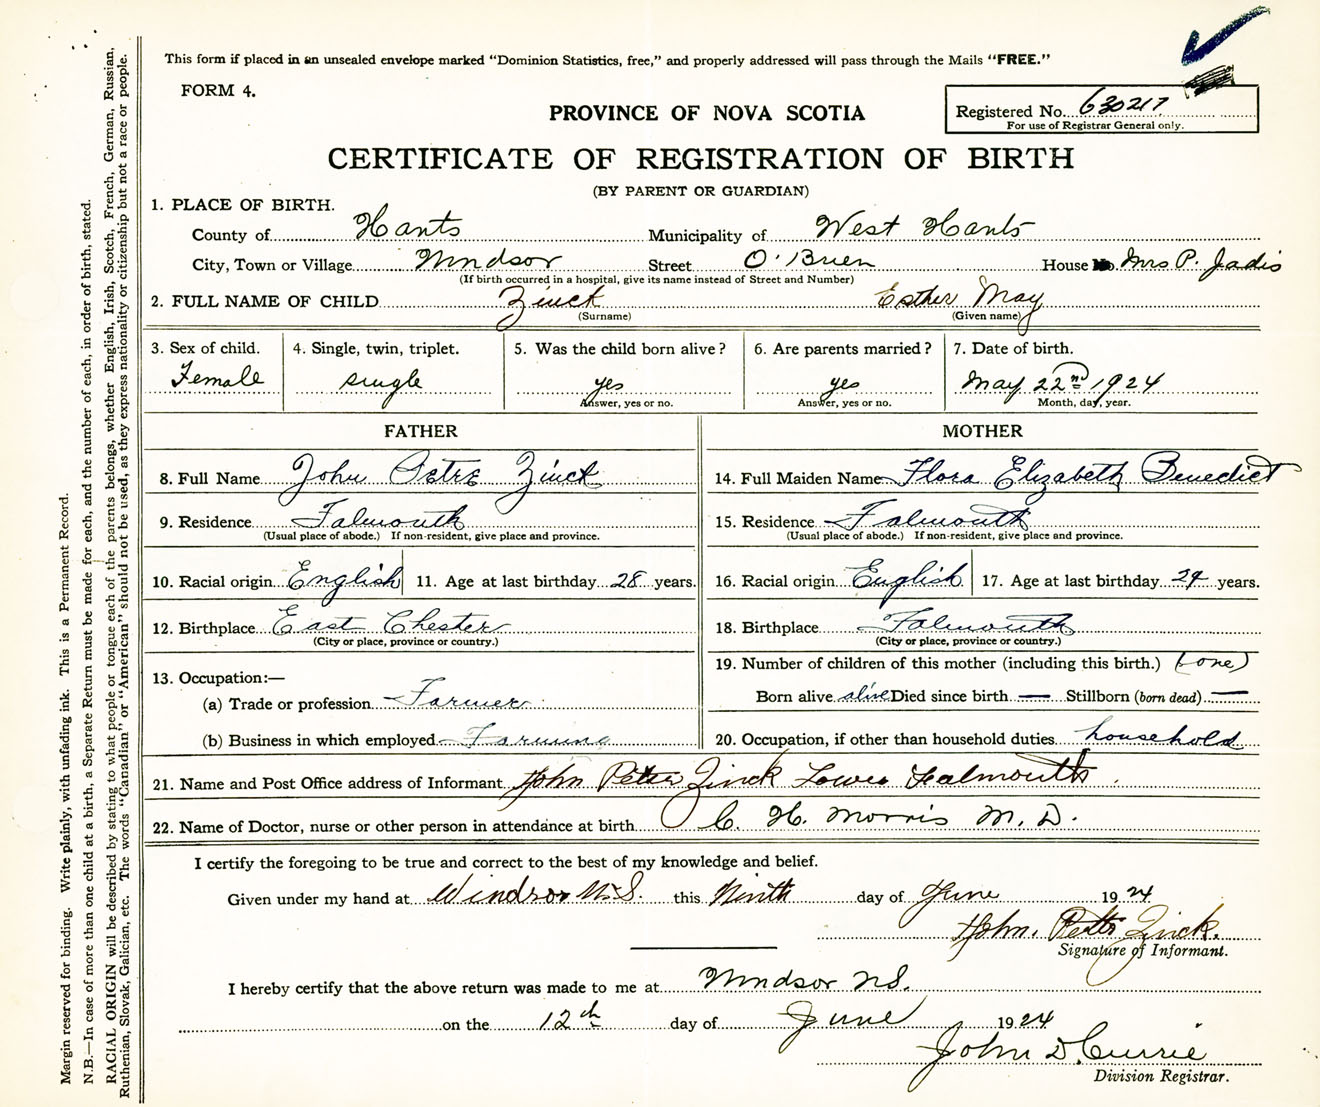 This form if placed in an unsealed envelope marked "Dominion Statistics, free," and properly addressed will pass through the Mails "FREE."
FORM 4.
PROVINCE OF NOVA SCOTIA
Registered No. 630217
For use of Registrar General only.
CERTIFICATE OF REGISTRATION OF BIRTH
(BY PARENT OR GUARDIAN)
1. PLACE OF BIRTH.
County of Hants Municipality of West Hants
City, Town or Village Windsor Street O'Brien House Mrs P. Jadis
(If birth occurred in a hospital, give its name instead of Street and Number)
2. FULL NAME OF CHILD Zinck Esther May
(Surname) (Given name)
3. Sex of child. 4. Single, twin, triplet. 5. Was the child born alive? 6. Are parents married? 7. Date of birth.
Female single yes yes May 22nd 1924
Answer, yes or no. Answer, yes or no. Month, day, year.
FATHER MOTHER
8. Full Name John Petre Zinck 14. Full Maiden Name Flora Elizabeth Benedict
9. Residence Falmouth 15. Residence Falmouth
(Usual place of abode.) If non-resident, give place and province. (Usual place of abode.) If non-resident, give place and province.
10. Racial origin English 11. Age at last birthday 28 years. 16. Racial origin English 17. Age at last birthday years.
12. Birthplace East Chester 18. Birthplace Falmouth
(City or place, province or country.) (City or place, province or country.)
19. Number of children of this mother (including this birth.) (one)
13. Occupation:—
(a) Trade or profession Farmer Born alive alive Died since birth — Stillborn (born dead) —
(b) Business in which employed Farming 20. Occupation, if other than household duties household
21. Name and Post Office address of Informant John Peter Zinck Lower Falmouth
22. Name of Doctor, nurse or other person in attendance at birth C. H. Morris M. D.
I certify the foregoing to be true and correct to the best of my knowledge and belief.
Given under my hand at Windsor N.S. this Ninth day of June 1924
John. Peter Zinck.
Signature of Informant.
I hereby certify that the above return was made to me at Windsor N.S.
on the 12th day of June 1924
John D. Currie
Division Registrar.
Margin reserved for binding. Write plainly, with unfading ink. This is a Permanent Record.
N.B.—In case of more than one child at a birth, a Separate Return must be made for each, and the number of each, in order of birth, stated.
RACIAL ORIGIN will be described by stating to what people or tongue each of the parents belongs, whether English, Irish, Scotch, French, German, Russian,
Ruthenian, Slovak, Galician, etc. The words "Canadian" or "American" should not be used, as they express nationality or citizenship but not a race or people.